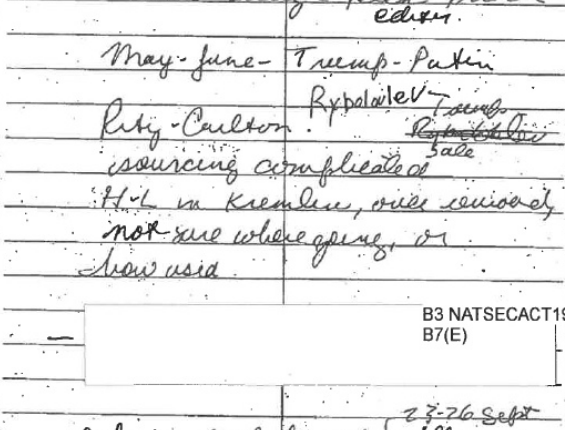 editor.
May-June - Trump-Putin
Rybolovlev - Trump
Ritz-Carlton. Sale
sourcing complicated
H-L in Kremlin, once removed,
not sure where going, or
how used
B3 NATSECACT19
B7(E)
23-26 Sept